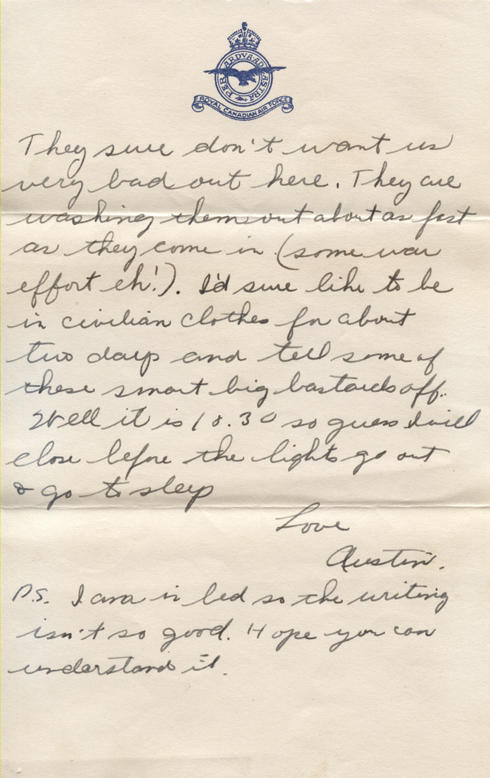 PER ARDVA AD ASTRA
ROYAL CANADIAN AIR FORCE
They sure don't want us
very bad out here. They are
washing them out about as fast
as they come in (some war
effort eh!). I'd sure like to be
in civilian clothes for about
two days and tell some of
these smart big bastards off.
Well it is 10.30 so guess I will
close before the lights go out
& go to sleep
Love
Austin.
P.S. I am in bed so the writing
isn't so good. Hope you can
understand it.